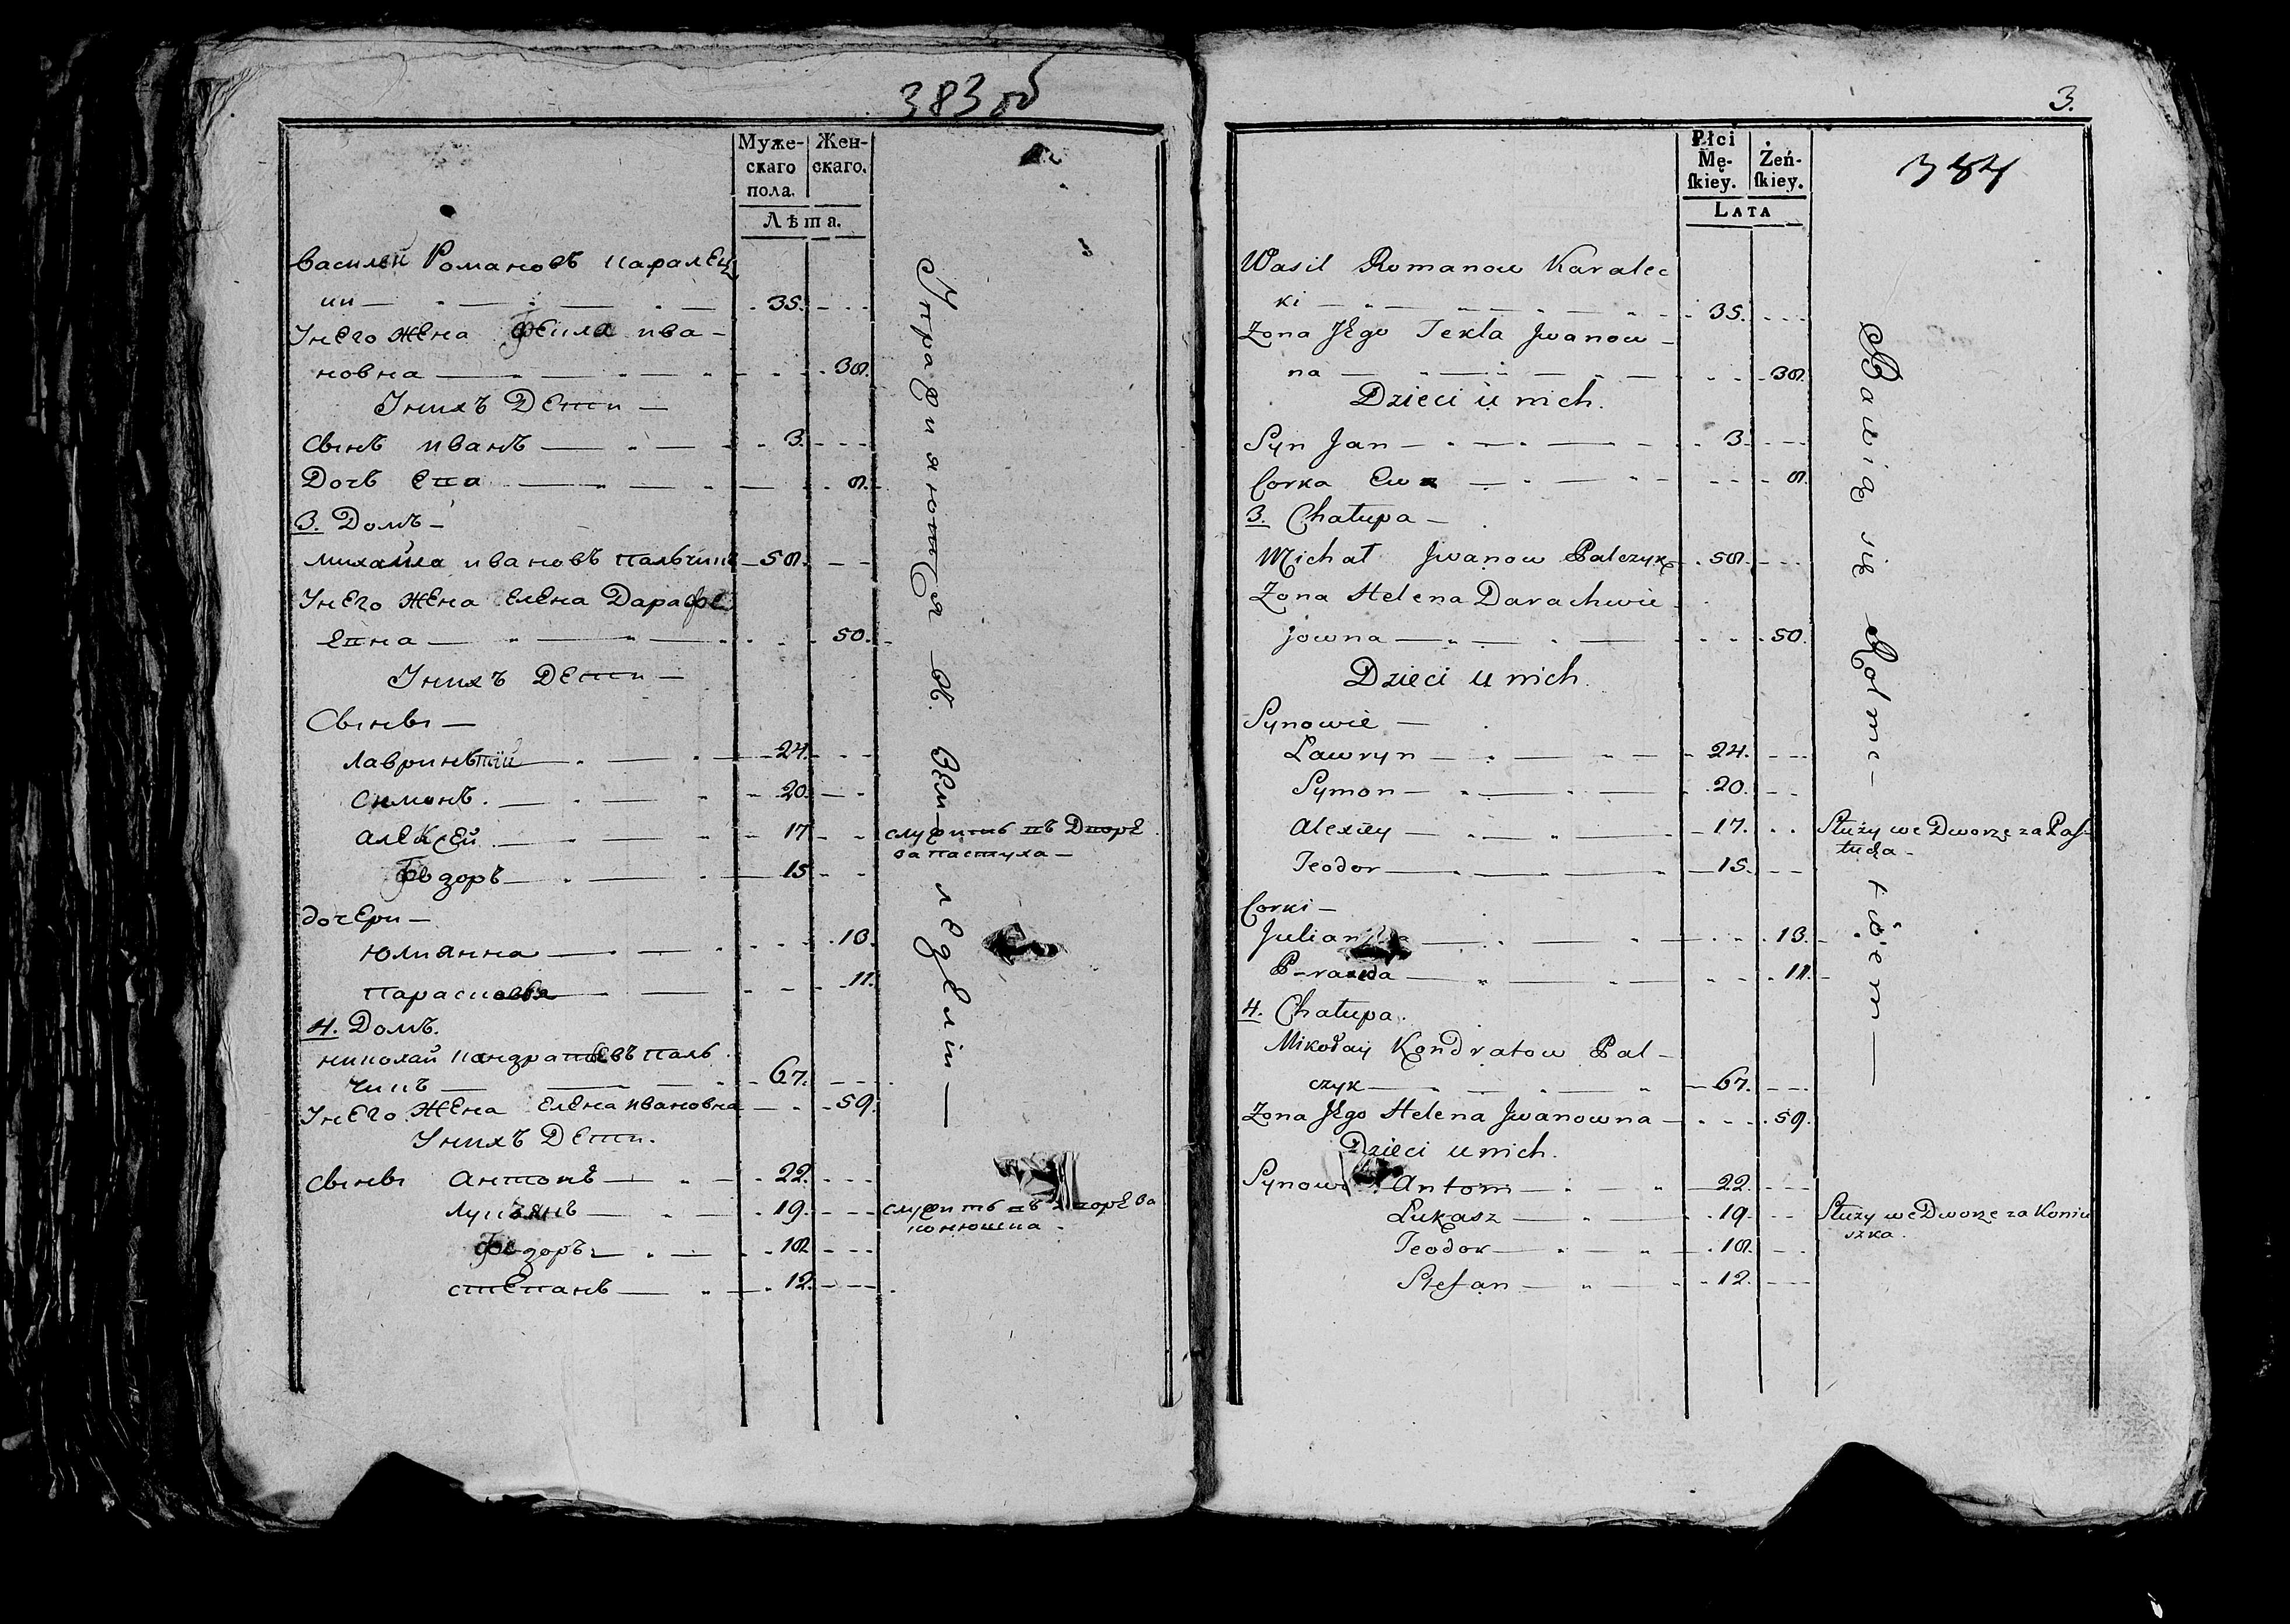 383 об
Муже-
скаго
пола.
Жен-
скаго.
Лѣта.
Василей Романовъ Каралец
ки 35.
У него жена Фекла Ива-
новна 38.
У нихъ Дети
Сынъ Иванъ 3.
Дочь Ева 8.
3. Домъ
Михайла Ивановъ Пальчикъ 58.
У него жена Елена Дарафе
евна 50.
У нихъ Дети
Сыновьи
Лаврентий 24.
Симонъ 20.
Алексей 17 служитъ въ Дворе
за пастуха
Федоръ 15
Дочери
Юлианна 13.
Парасковья 11.
4. Домъ.
Николай Кандратьевъ Паль
чикъ 67.
У него жена Елена Ивановна 59.
У нихъ Дети.
Сыновьи Антонъ 22.
Лукьянъ 19. служитъ въ Дворе за
конюшка
Федоръ 18
Степанъ 12.
Упражняются въ земледелии
3.
384
Płci
Mę-
ſkiey.
Żeń-
ſkiey.
LATA
Wasil Romanow Karalec
ki 35.
Zona Jego Tekla Jwanow
na 38.
Dzieci u nich.
Syn Jan 3
Corka Ewa 8.
3. Chałupa
Michał Jwanow Palczyk 58.
Zona Helena Darachwie
jowna 50.
Dzieci u nich.
Synowie
Lawryn 24.
Symon 20.
Alexiey 17. Służy we Dworze za Paſ-
tucha
Teodor 15.
Corki
Julianna 13.
Praxeda 11.
4. Chałupa.
Mikołay Kondratow Pal-
czyk 67.
Zona Jego Helena Jwanowna 59.
Dzieci u nich.
Synowie Antoni 22.
Łukasz 19. Służy we Dworze za Koniu
szka.
Teodor 18.
Stefan 12.
Bawią się Rolnictwem